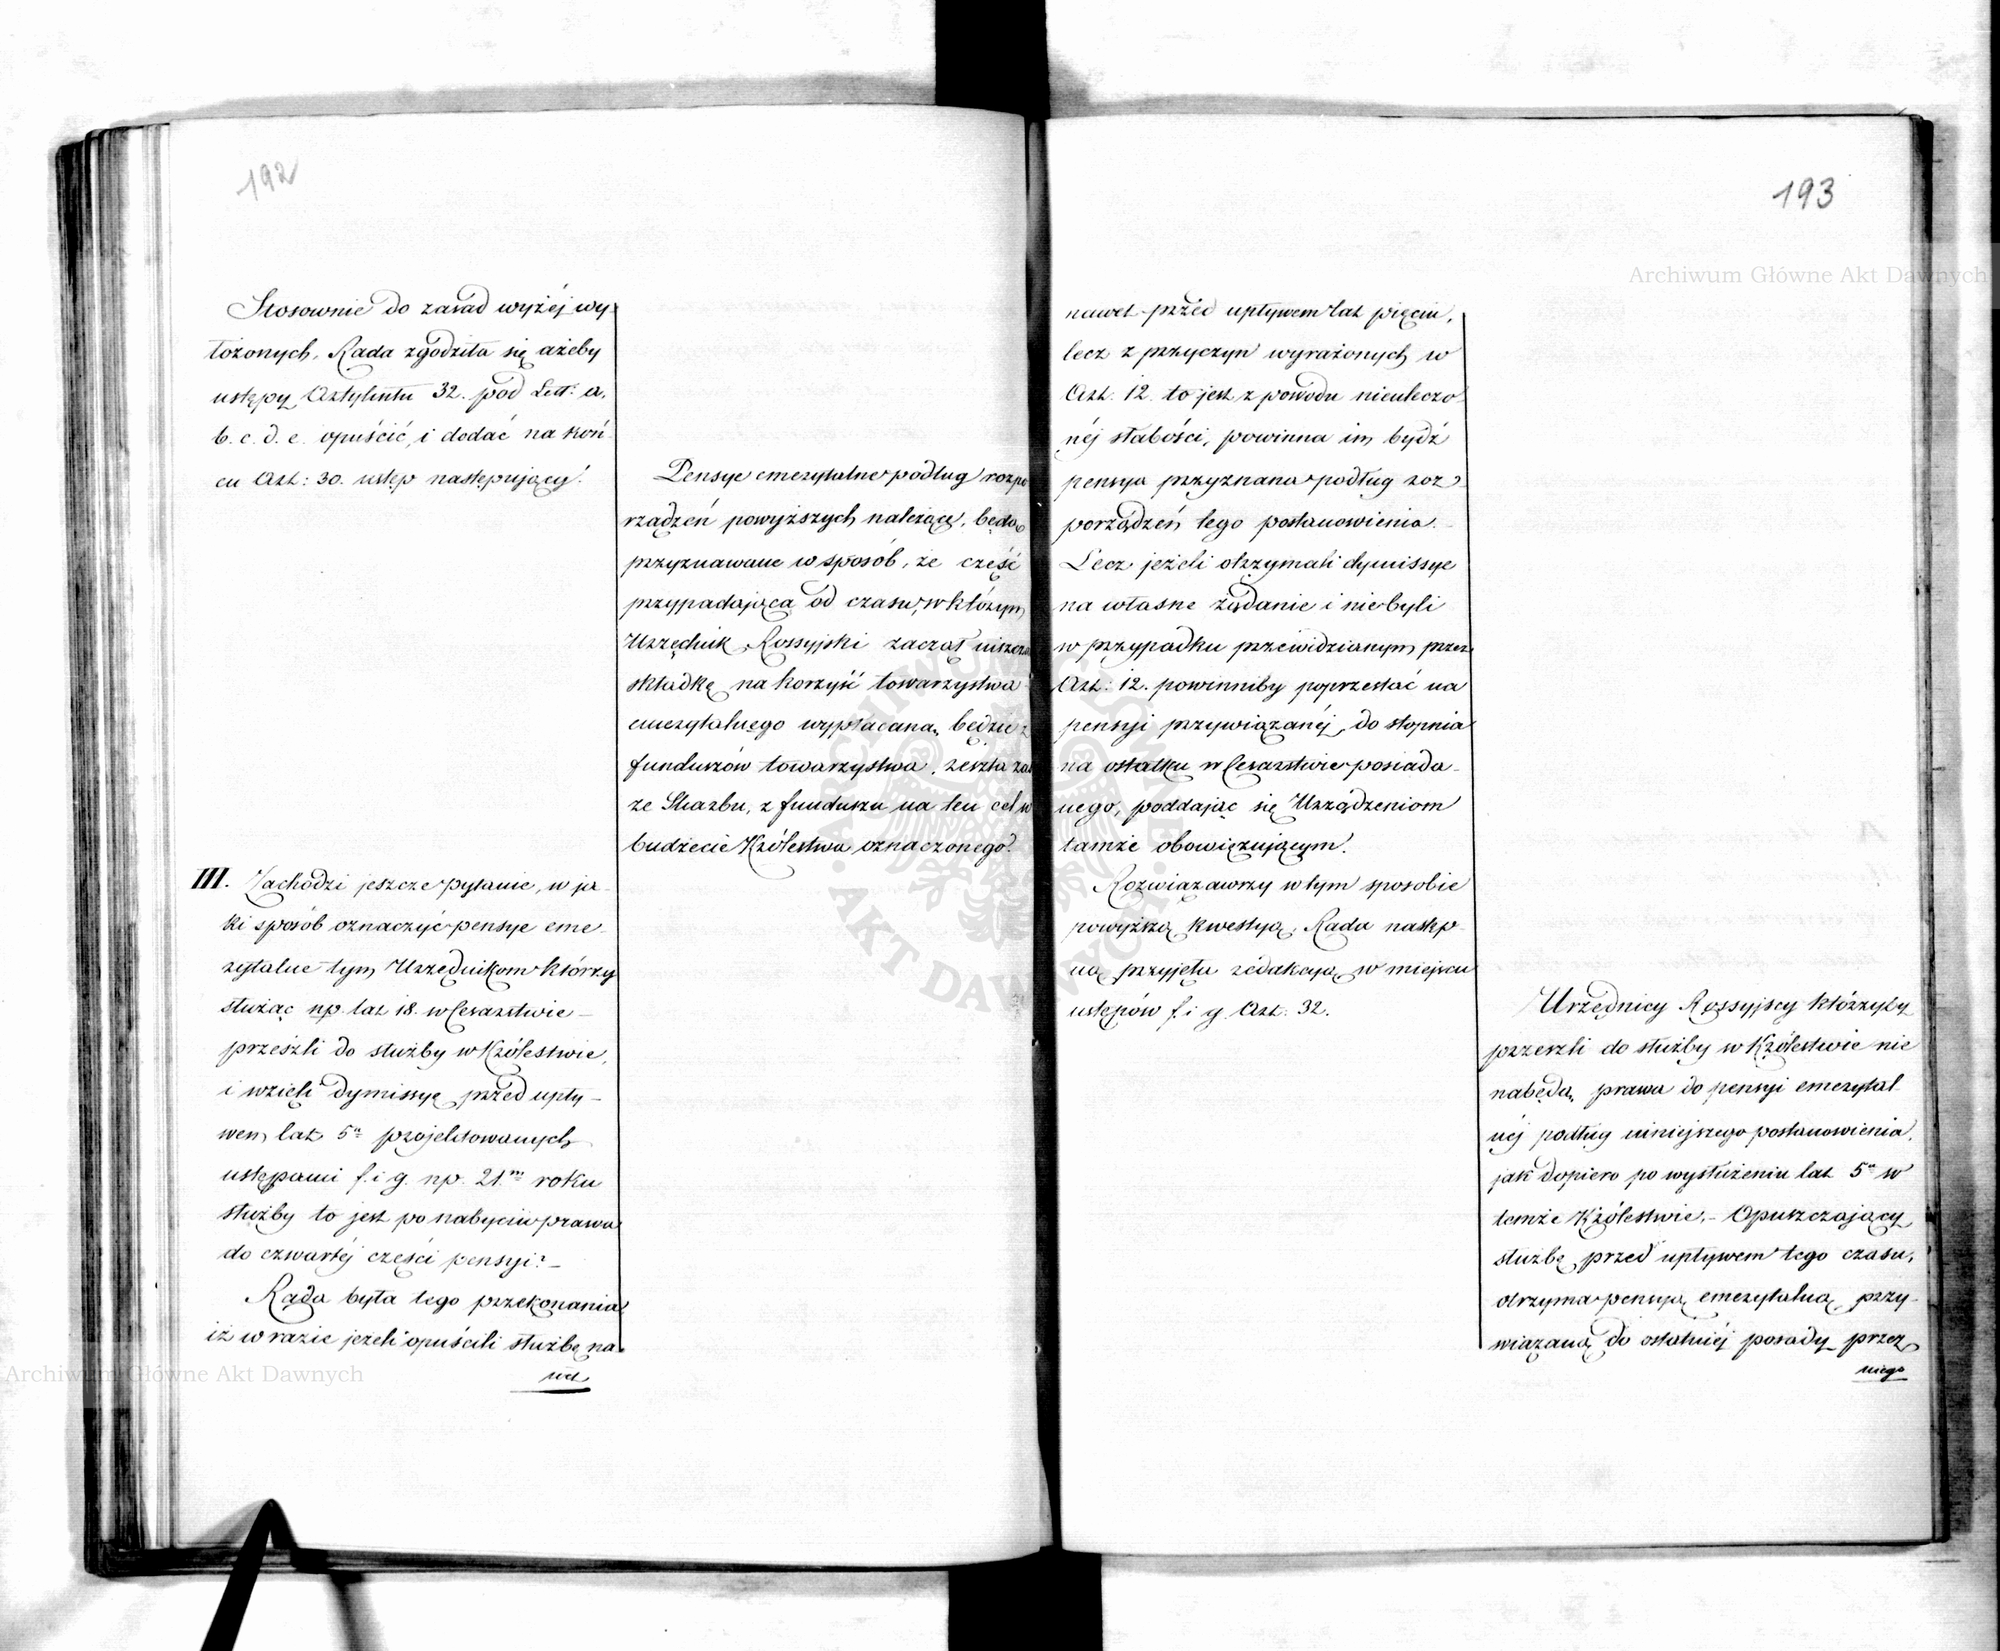 192
Stosownie do zasad wyżéj wy-
łożonych, Rada zgodziła się ażeby
ustępy Artykułu 32. pod Litt: a.
b. c. d. e. opuścić, i dodać na koń-
cu Art: 30. ustęp następujący:
Pensye emerytalne podług rozpo
rządzeń powyższych należące, będą
przyznawane w sposób, że część
przypadająca od czasu, w którym
Urzędnik Rossyjski zaczął uiszczać
składkę na korzyść towarzystwa
emerytalnego wypłacana będzie z
funduszów towarzystwa, reszta zaś
ze Skarbu, z funduszu na ten cel w
budżecie Królestwa oznaczonego.
III. Zachodzi jeszcze pytanie, w ja-
ki sposób oznaczyć pensye eme-
rytalne tym Urzędnikom którzy
służąc np. lat 18. w Cesarstwie –
przeszli do służby w Królestwie,
i wzięli dymissyę przed upły-
wem lat 5u projektowanych
ustępami f. i g. np. 21m roku
służby to jest po nabyciu prawa
do czwartéj części pensyi? –
Rada była tego przekonania
iż w razie jeżeli opuścili służbę na-
wet
193
nawet przed upływem lat pięciu,
lecz z przyczyn wyrażonych w
Art. 12. to jest z powodu nieuleczo-
néj słabości, powinna im bydź
pensya przyznana podług roz-
porządzeń tego postanowienia. –
Lecz jeżeli otrzymali dymissye
na własne żądanie i nie byli
w przypadku przewidzianym przez
Art: 12. powinniby poprzestać na
pensyi przywiązanéj do stopnia
na ostatku w Cesarstwie posiada-
nego, poddając się Urządzeniom
tamże obowiązującym.
Rozwiązawszy w tym sposobie
powyższą kwestyą, Rada następ-
ną przyjęła redakcyą w miejscu
ustępów f. i g. Art. 32.
Urzędnicy Rossyjscy którzyby
przeszli do służby w Królestwie nie
nabędą prawa do pensyi emerytal-
néj podług niniejszego postanowienia,
jak dopiero po wysłużeniu lat 5u w
temże Królestwie. – Opuszczający
służbę przed upływem tego czasu,
otrzyma pensyą emerytalną przy-
wiązaną do ostatniéj posady przez
niego
Archiwum Główne Akt Dawnych
Archiwum Główne Akt Dawnych
ARCHIWUM GŁÓWNE AKT DAWNYCH